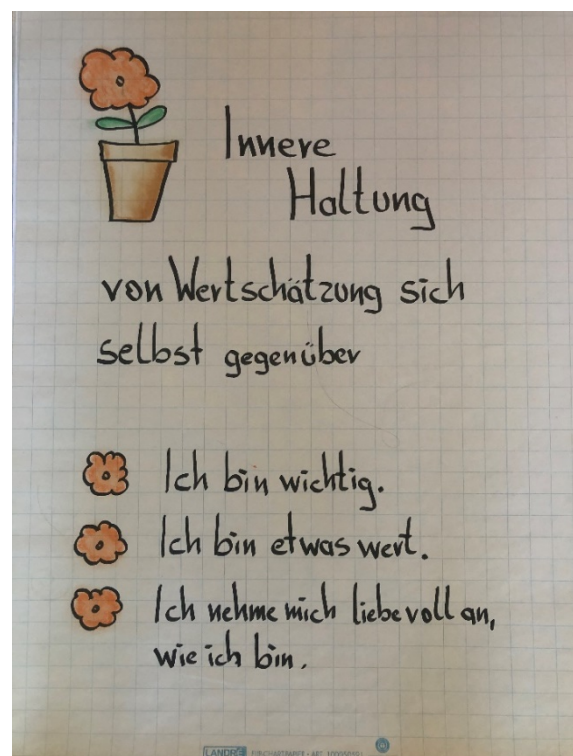 Innere
Haltung
von Wertschätzung sich
selbst gegenüber
Ich bin wichtig.
Ich bin etwas wert.
Ich nehme mich liebevoll an,
wie ich bin.
LANDRÉ